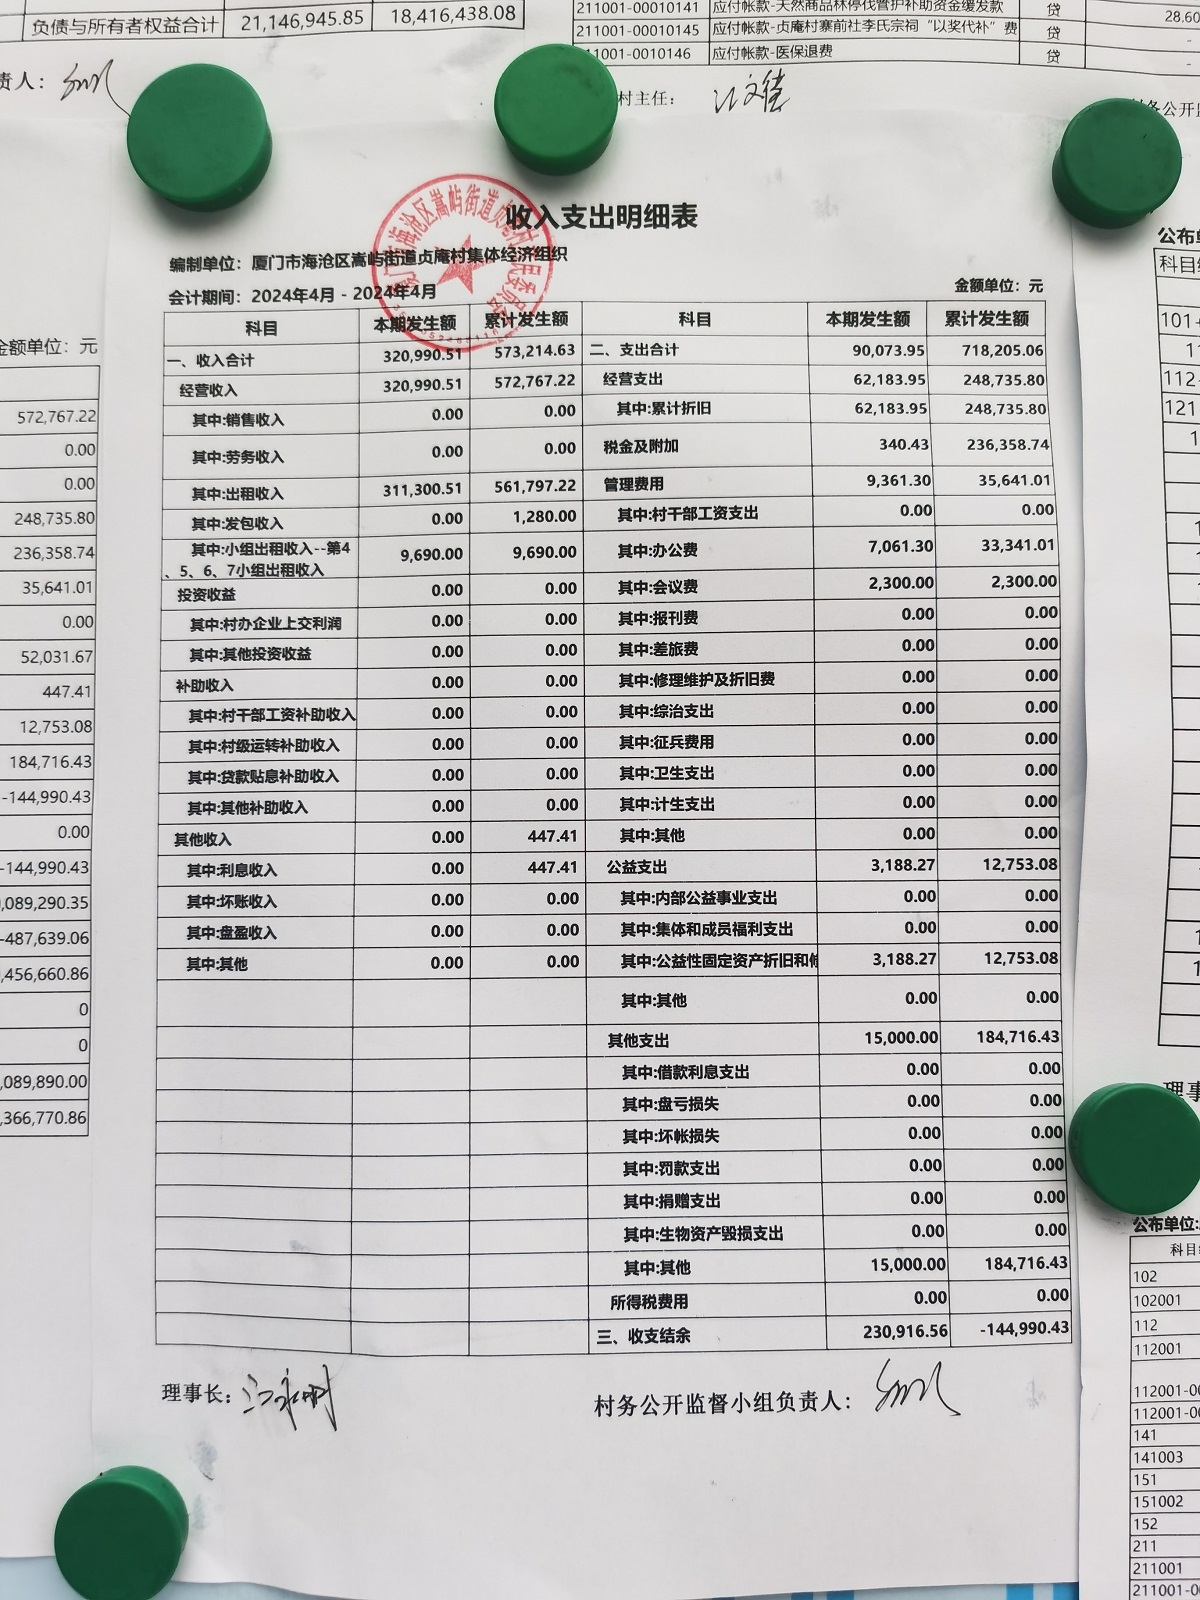 负债与所有者权益合计 21,146,945.85 18,416,438.08
211001-00010141 应付帐款-天然商品林停伐管护补助资金缓发款 贷 28.60
211001-00010145 应付帐款-贞庵村寨前社李氏宗祠“以奖代补”费 贷 -
11001-0010146 应付帐款-医保退费 贷 -
责人：
村主任：
务公开监
收入支出明细表
编制单位：厦门市海沧区嵩屿街道贞庵村集体经济组织
会计期间：2024年4月 - 2024年4月 金额单位：元
科目 本期发生额 累计发生额 科目 本期发生额 累计发生额
一、收入合计 320,990.51 573,214.63 二、支出合计 90,073.95 718,205.06
经营收入 320,990.51 572,767.22 经营支出 62,183.95 248,735.80
其中:销售收入 0.00 0.00 其中:累计折旧 62,183.95 248,735.80
其中:劳务收入 0.00 0.00 税金及附加 340.43 236,358.74
其中:出租收入 311,300.51 561,797.22 管理费用 9,361.30 35,641.01
其中:发包收入 0.00 1,280.00 其中:村干部工资支出 0.00 0.00
其中:小组出租收入--第4
、5、6、7小组出租收入 9,690.00 9,690.00 其中:办公费 7,061.30 33,341.01
投资收益 0.00 0.00 其中:会议费 2,300.00 2,300.00
其中:村办企业上交利润 0.00 0.00 其中:报刊费 0.00 0.00
其中:其他投资收益 0.00 0.00 其中:差旅费 0.00 0.00
补助收入 0.00 0.00 其中:修理维护及折旧费 0.00 0.00
其中:村干部工资补助收入 0.00 0.00 其中:综治支出 0.00 0.00
其中:村级运转补助收入 0.00 0.00 其中:征兵费用 0.00 0.00
其中:贷款贴息补助收入 0.00 0.00 其中:卫生支出 0.00 0.00
其中:其他补助收入 0.00 0.00 其中:计生支出 0.00 0.00
其他收入 0.00 447.41 其中:其他 0.00 0.00
其中:利息收入 0.00 447.41 公益支出 3,188.27 12,753.08
其中:坏账收入 0.00 0.00 其中:内部公益事业支出 0.00 0.00
其中:盘盈收入 0.00 0.00 其中:集体和成员福利支出 0.00 0.00
其中:其他 0.00 0.00 其中:公益性固定资产折旧和 3,188.27 12,753.08
其中:其他 0.00 0.00
其他支出 15,000.00 184,716.43
其中:借款利息支出 0.00 0.00
其中:盘亏损失 0.00 0.00
其中:坏帐损失 0.00 0.00
其中:罚款支出 0.00 0.00
其中:捐赠支出 0.00 0.00
其中:生物资产毁损支出 0.00 0.00
其中:其他 15,000.00 184,716.43
所得税费用 0.00 0.00
三、收支结余 230,916.56 -144,990.43
理事长：
村务公开监督小组负责人：
金额单位：元
572,767.22
0.00
0.00
248,735.80
236,358.74
35,641.01
0.00
52,031.67
447.41
12,753.08
184,716.43
-144,990.43
0.00
-144,990.43
,089,290.35
-487,639.06
,456,660.86
0
0
,089,890.00
,366,770.86
公布单
科目
101
11
112-
121
理事
公布单位:
科目
102
102001
112
112001
112001-00
112001-00
141
141003
151
151002
152
211
211001
211001-00